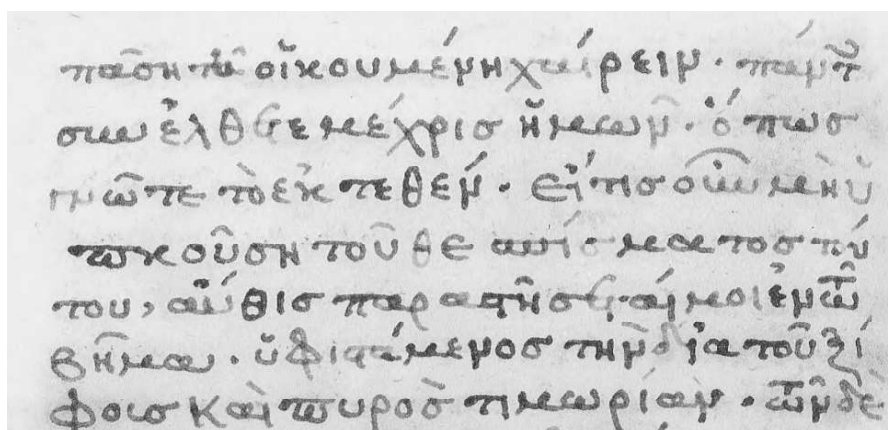 πᾶση τῆ οἴκουμένη χαίρειν · πάντ
συνέλθετε μέχρις ἤμων · ὅπως
γνῶτε τὸ ἐκτεθέν · εἴτις οὖν μὴ ὑ
πακοῦση τοῦ θεσπίσματος τού
του, αὖθις παραστῆσεταί μοι ἐν τῶ
βῆμα · ὑφιστάμενος τὴν διὰ τοῦ ξί
φους καὶ πυρὸς τιμωρίαν · τῶν δὲ